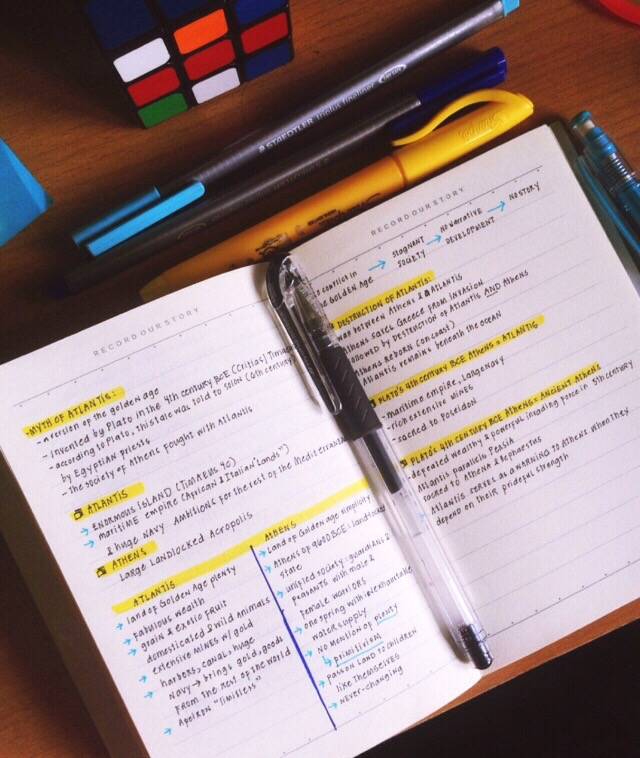 STAEDTLER triplus fineliner
RECORD OUR STORY
MYTH OF ATLANTIS:
- a version of the golden age
- invented by Plato in the 4th century BCE (Critias/Timaeus
- according to Plato, this tale was told to Solon (6th century
by Egyptian priests
- the society of Athens fought with Atlantis
ATLANTIS
→ ENORMOUS ISLAND (TIMAEUS
→ maritime empire (African & Italian lands")
& huge NAVY AMBITIONS for the rest of the Mediterranean
ATHENS
Large Landlocked Acropolis
ATLANTIS
land of Golden Age plenty
→ fabulous wealth
→ grain & exotic fruit
→ domesticated & wild animals
extensive MINES w/ gold
→ harbors: canal: huge
NAVY → brings gold, goods
from the rest of the world
→ Apeiron "limitless"
ATHENS
→ Land of Golden Age simplicity
→ Athens of 9600 BCE: landlocked
state
→ unified society: guardians &
peasants with male &
female warriors
→ one spring with
water supply
→ NO MENTION OF PLENTY
↳ primitivism
→ PASS ON LAND TO CHILDREN
like THEMSELVES
→ NEVER-CHANGING
RECORD OUR STORY
conflict in → stagnant → no narrative → NO STORY
Golden Age SOCIETY DEVELOPMENT
DESTRUCTION OF ATLANTIS:
between Athens & Atlantis
saves Greece from invasion
followed by destruction of Atlantis AND Athens
Athens reborn (on coast)
Atlantis remains beneath the ocean
PLATO'S 4th century BCE Athens = ATLANTIS
- maritime empire, large navy
- rich extensive mines
- sacred to Poseidon
PLATO'S 4TH CENTURY BCE ATHENS: ANCIENT ATHENS
- defeated wealthy & powerful invading force in 5th century
Atlantis parallels Persia
sacred to Athena & Hephaestus
ATLANTIS SERVES as a WARNING to ATHENS when they
depend on their prideful strength